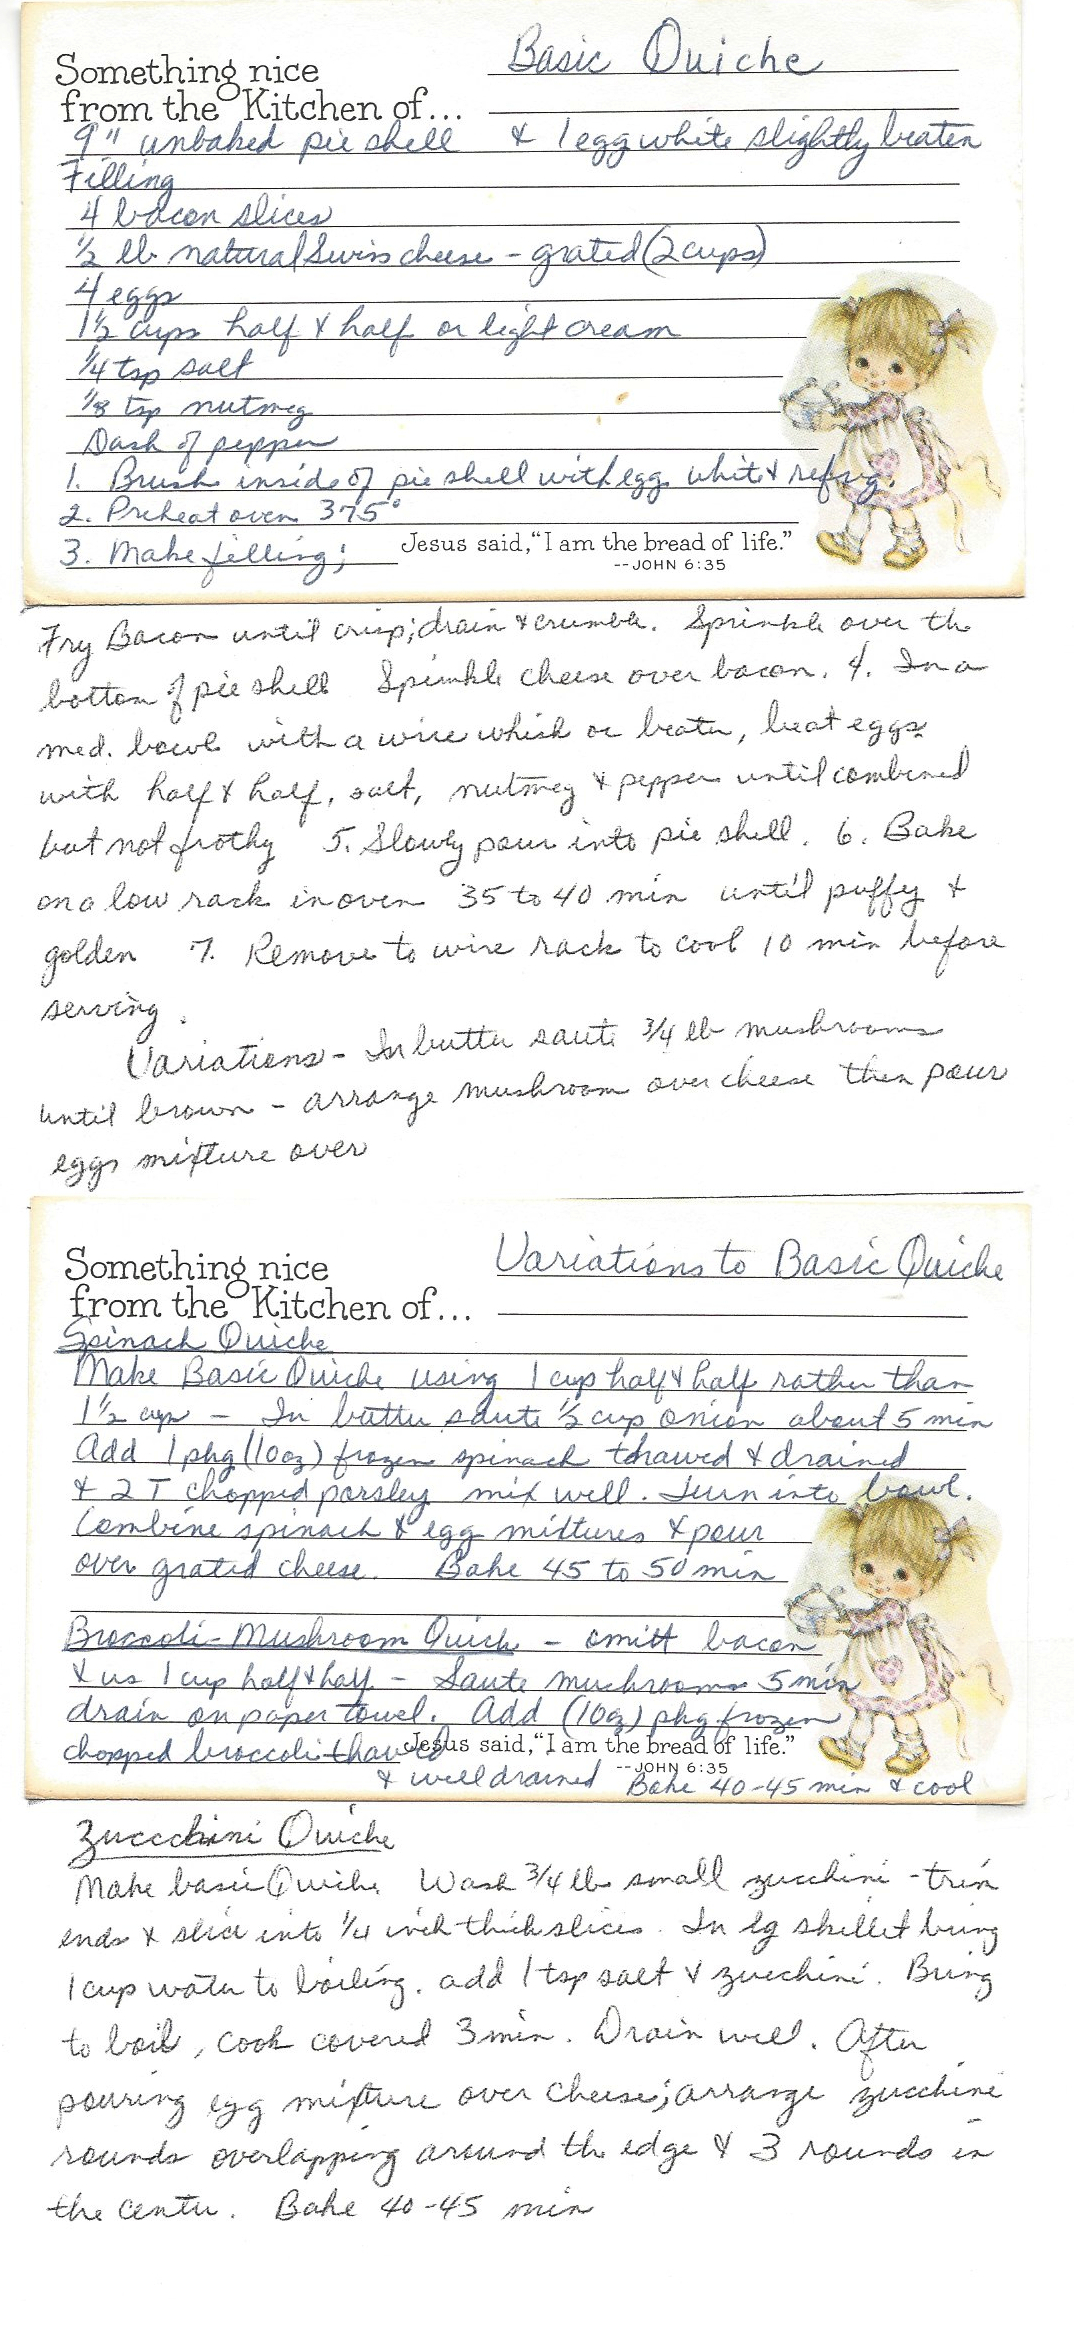 Something nice
from the Kitchen of...
Basic Quiche
9" unbaked pie shell & 1 egg white slightly beaten
Filling
4 bacon slices
1/2 lb natural Swiss cheese - grated (2 cups)
4 eggs
1 1/2 cups half & half or light cream
1/4 tsp salt
1/8 tsp nutmeg
Dash of pepper
1. Brush inside of pie shell with egg white & refrig.
2. Preheat oven 375°
3. Make filling;
Jesus said, "I am the bread of life."
--JOHN 6:35
Fry Bacon until crisp; drain & crumble. Sprinkle over the
bottom of pie shell Sprinkle cheese over bacon. 4. In a
med. bowl with a wire whisk or beater, beat eggs
with half & half, salt, nutmeg & pepper until combined
but not frothy 5. Slowly pour into pie shell. 6. Bake
on a low rack in oven 35 to 40 min until puffy &
golden 7. Remove to wire rack to cool 10 min before
serving.
Variations - In butter saute 3/4 lb mushrooms
until brown - arrange mushroom over cheese then pour
eggs mixture over
Something nice
from the Kitchen of...
Variations to Basic Quiche
Spinach Quiche
Make Basic Quiche using 1 cup half & half rather than
1 1/2 cup - In butter saute 1/2 cup onion about 5 min
Add 1 pkg (10oz) frozen spinach thawed & drained
& 2 T chopped parsley mix well. Turn into bowl.
Combine spinach & egg mixtures & pour
over grated cheese. Bake 45 to 50 min
Broccoli-Mushroom Quich - omitt bacon
& us 1 cup half & half - Saute muchrooms 5 min
drain on paper towel. Add (10oz) pkg frozen
chopped broccoli thawed
Jesus said, "I am the bread of life."
--JOHN 6:35
& well drained Bake 40-45 min & cool
Zuccchini Quiche
Make basic Quiche Wash 3/4 lb small zucchini - trim
ends & slice into 1/4 inch thick slices. In lg skillet bring
1 cup water to boiling. add 1 tsp salt & zucchini. Bring
to boil, cook covered 3 min. Drain well. After
pouring egg mixture over cheese; arrange zucchini
rounds overlapping around the edge & 3 rounds in
the center. Bake 40-45 min